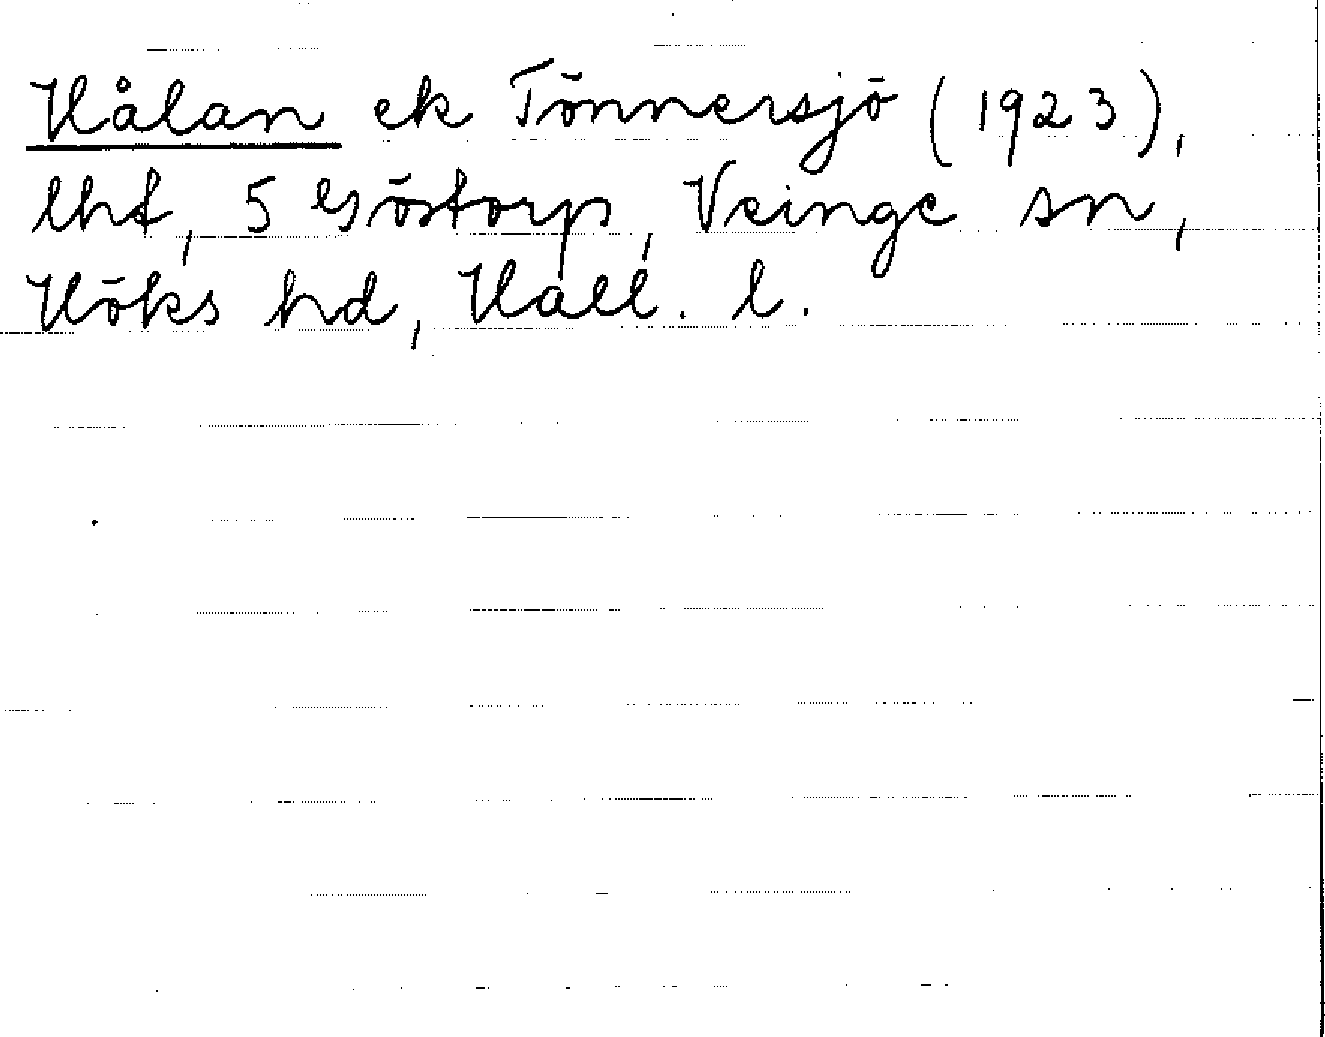 Hålan ek Tönnersjö (1923),
lht, 5 Göstorp, Veinge sn,
Höks hd, Hall. l.